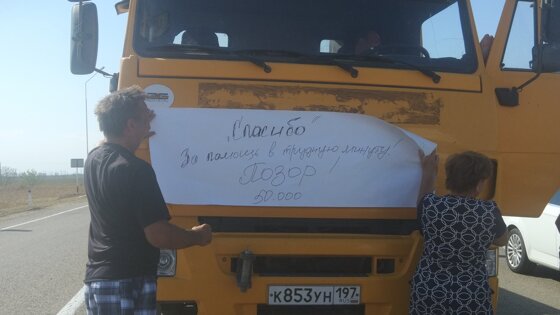 „Спасибо"
За помощь в трудную минуту!
Позор!
50.000
К853УН 197
RUS